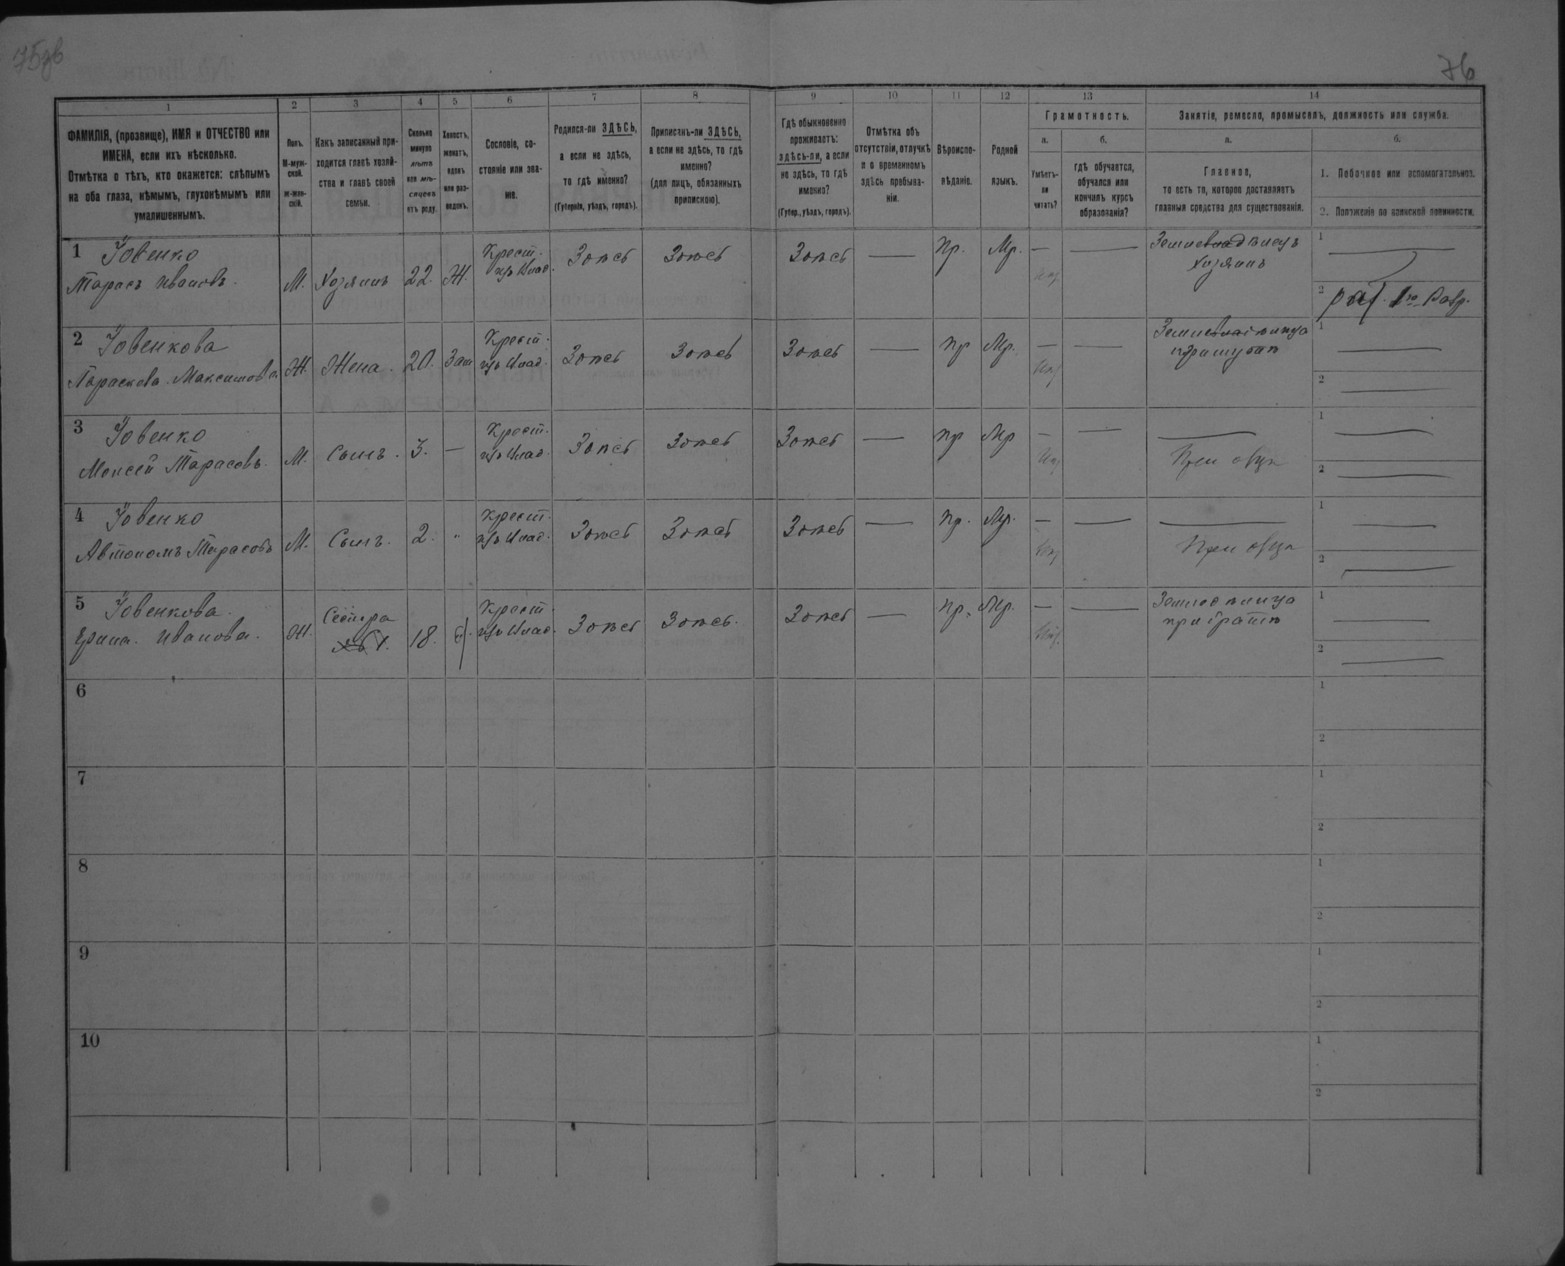 75об
76
1 2 3 4 5 6 7 8 9 10 11 12 13 14
ФАМИЛІЯ, (прозвище), ИМЯ и ОТЧЕСТВО или
ИМЕНА, если ихъ нѣсколько.
Отмѣтка о тѣхъ, кто окажется: слѣпымъ
на оба глаза, нѣмымъ, глухонѣмымъ или
умалишеннымъ.
Полъ.
М-муж-
ской.
Ж-жен-
скій.
Какъ записанный при-
ходится главѣ хозяй-
ства и главѣ своей
семьи.
Сколько
минуло
лѣтъ
или мѣ-
сяцевъ
отъ роду.
Холостъ,
женатъ,
вдовъ
или раз-
веденъ.
Сословіе, со-
стояніе или зва-
ніе.
Родился-ли ЗДѢСЬ,
а если не здѣсь,
то гдѣ именно?
(Губернія, уѣздъ, городъ).
Приписанъ-ли ЗДѢСЬ,
а если не здѣсь, то гдѣ
именно?
(для лицъ, обязанныхъ
припискою).
Гдѣ обыкновенно
проживаетъ:
здѣсь-ли, а если
не здѣсь, то гдѣ
именно?
(Губер., уѣздъ, городъ).
Отмѣтка объ
отсутствіи, отлучкѣ
и о временномъ
здѣсь пребыва-
ніи.
Вѣроиспо-
вѣданіе.
Родной
языкъ.
Грамотность.
а.
Умѣетъ-
ли
читать?
б.
гдѣ обучается,
обучался или
кончилъ курсъ
образованія?
Занятіе, ремесло, промыселъ, должность или служба.
а.
Главное,
то есть то, которое доставляетъ
главныя средства для существованія.
б.
1. Побочное или вспомогательное.
2. Положеніе по воинской повинности.
1 Іовенко
Тарасъ Ивановъ.
М. Хозяинъ 22. Ж. Крест.
изъ Влад.
Здѣсь Здѣсь Здѣсь — Пр. Мр. — —
Хозяинъ
1 —
2
2 Іовенкова
Параскова Максимова
Ж. Жена. 20. Зам Крест.
изъ Влад.
Здѣсь Здѣсь Здѣсь — Пр Мр. — —
1 —
2 —
3 Іовенко
Моисей Тарасовъ.
М. Сынъ. 3. — Крест.
изъ Влад.
Здѣсь Здѣсь Здѣсь — Пр Мр — — —
При отцѣ
1 —
2 —
4 Іовенко
Автономъ Тарасовъ
М. Сынъ. 2. " Крест.
изъ Влад.
Здѣсь Здѣсь Здѣсь — Пр. Мр. — — —
При отцѣ
1 —
2 —
5 Іовенкова.
Ирина Иванова.
Ж. Сестра
х. 1.
18. Д. Крест.
изъ Влад.
Здѣсь Здѣсь. Здѣсь — Пр. Мр. — —
при братѣ
1 —
2 —
6
1
2
7
1
2
8
1
2
9
1
2
10
1
2